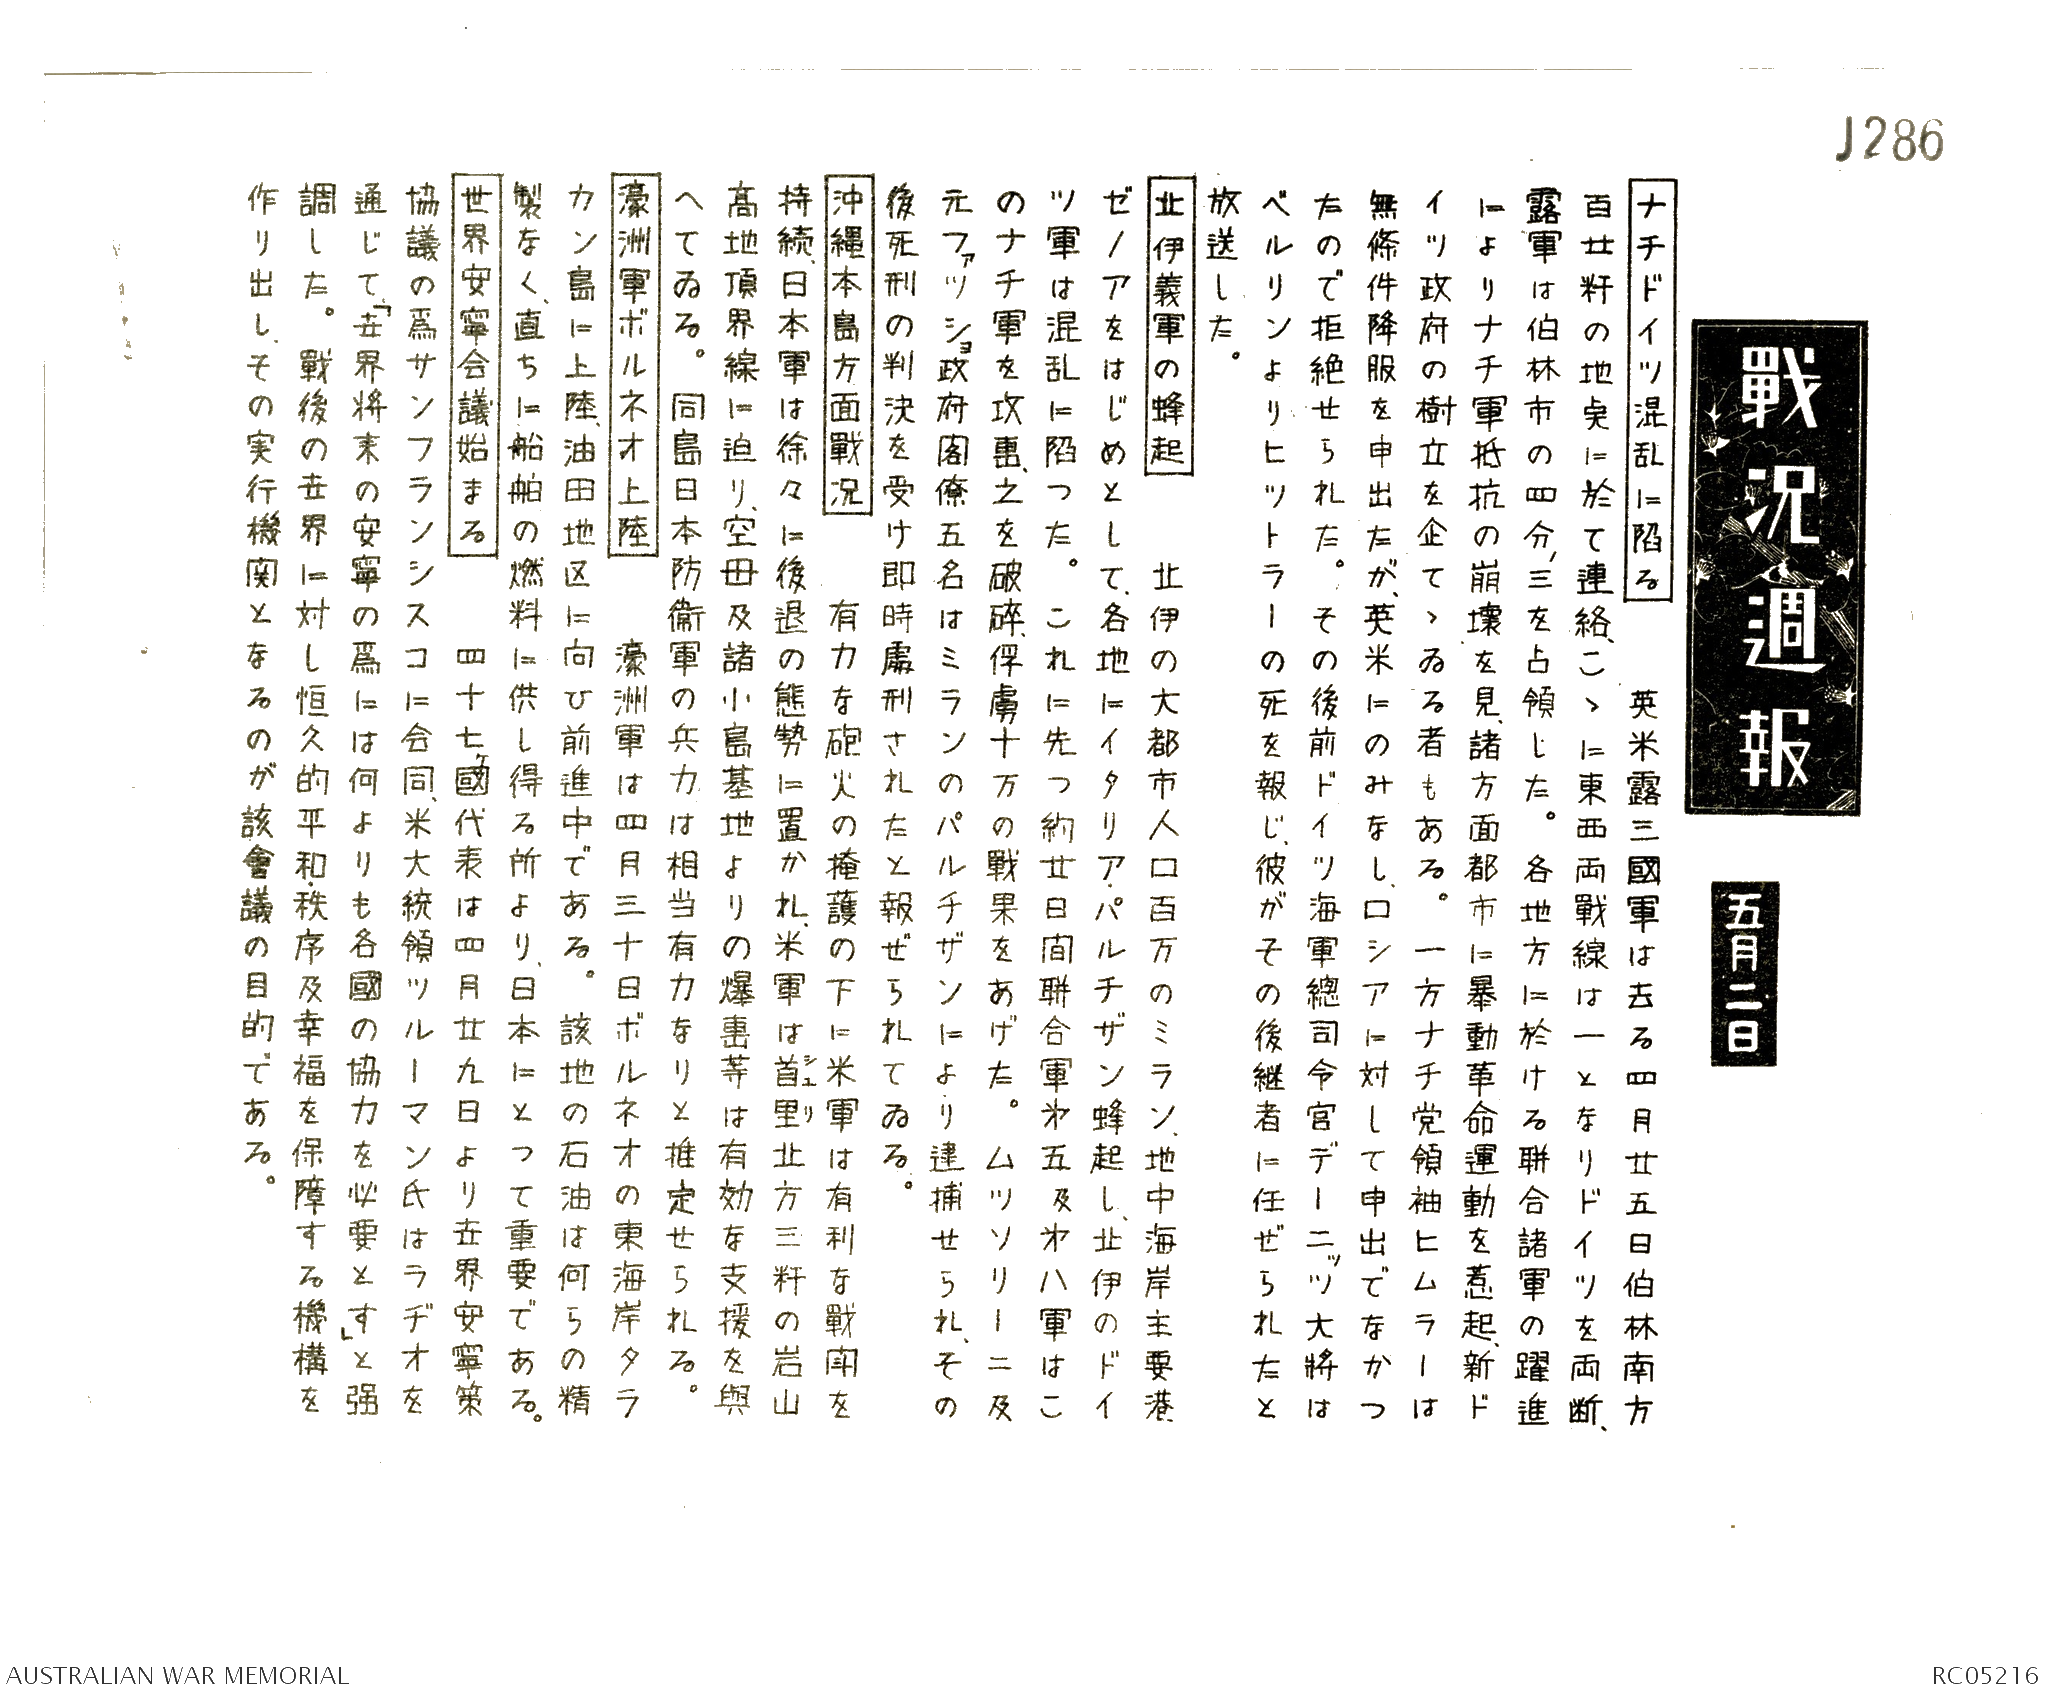 J286
戰況週報
五月二日
ナチドイツ混乱に陷る　英米露三國軍は去る四月廿五日伯林南方
百廿粁の地奌に於て連絡、こゝに東西両戰線は一となりドイツを両断、
露軍は伯林市の四分ノ三を占領した。各地方に於ける聯合諸軍の躍進
によりナチ軍抵抗の崩壊を見、諸方面都市に暴動革命運動を惹起、新ド
イツ政府の樹立を企てゝゐる者もある。一方ナチ党領袖ヒムラーは
無條件降服を申出たが、英米にのみなし、ロシアに対して申出でなかつ
たので拒絶せられた。その後前ドイツ海軍總司令官デーニッツ大將は
ベルリンよりヒットラーの死を報じ、彼がその後継者に任ぜられたと
放送した。
北伊義軍の蜂起　北伊の大都市人口百万のミラン、地中海岸主要港
ゼノアをはじめとして、各地にイタリア・パルチザン蜂起し、北伊のドイ
ツ軍は混乱に陷つた。これに先つ約廿日間聯合軍才五及才八軍はこ
のナチ軍を攻擊、之を破碎、俘虜十万の戰果をあげた。ムツソリーニ及
元ファッショ政府閣僚五名はミランのパルチザンにより逮捕せられ、その
後死刑の判決を受け即時處刑されたと報ぜられてゐる。
沖縄本島方面戰況　有力な砲火の掩護の下に米軍は有利な戰闘を
持続、日本軍は徐々に後退の態勢に置かれ、米軍は首里シュリ北方三粁の岩山
高地頂界線に迫り、空母及諸小島基地よりの爆擊等は有効な支援を與
へてゐる。同島日本防衞軍の兵力は相当有力なりと推定せられる。
濠洲軍ボルネオ上陸　濠洲軍は四月三十日ボルネオの東海岸タラ
カン島に上陸、油田地区に向ひ前進中である。該地の石油は何らの精
製なく、直ちに船舶の燃料に供し得る所より、日本にとつて重要である。
世界安寧会議始まる　四十七ヶ國代表は四月廿九日より世界安寧策
協議の爲サンフランシスコに会同、米大統領ツルーマン氏はラヂオを
通じて、「世界将来の安寧の爲には何よりも各國の協力を必要とす」と强
調した。戰後の世界に対し恒久的平和、秩序及幸福を保障する機構を
作り出し、その実行機関となるのが該會議の目的である。
AUSTRALIAN WAR MEMORIAL
RC05216